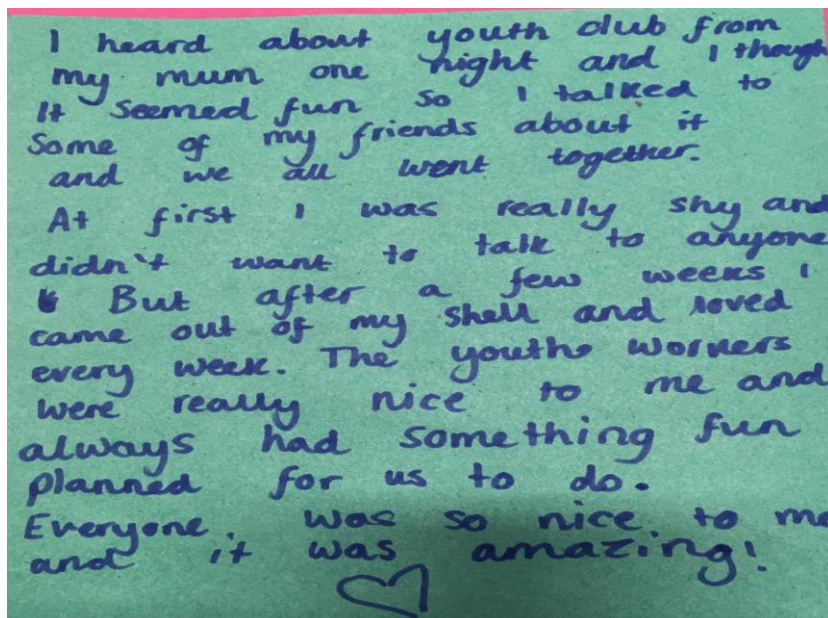 I heard about youth club from
my mum one night and I though
It seemed fun so I talked to
Some of my friends about it
and we all went together.
At first I was really shy and
didn't want to talk to anyone
But after a few weeks I
came out of my shell and loved
every week. The youth workers
were really nice to me and
always had something fun
planned for us to do.
Everyone. was so nice to me
and it was amazing!